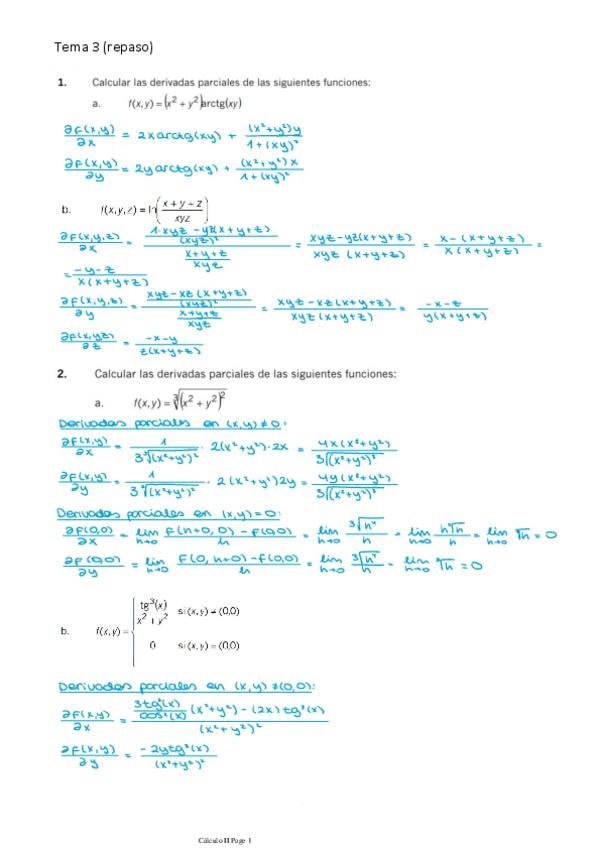 Tema 3 (repaso)
1. Calcular las derivadas parciales de las siguientes funciones:
a. f(x,y) = (x² + y²)arctg(xy)
∂f(x,y)/∂x = 2x arctg(xy) + (x²+y²)y/1+(xy)²
∂f(x,y)/∂y = 2y arctg(xy) + (x²+y²)x/1+(xy)²
b. f(x,y,z) = ln(x + y + z/xyz)
∂f(x,y,z)/∂x = 1·xyz - yz(x+y+z)/(xyz)²/x+y+z/xyz = xyz-yz(x+y+z)/xyz (x+y+z) = x-(x+y+z)/x(x+y+z) =
= -y-z/x(x+y+z)
∂f(x,y,z)/∂y = xyz-xz(x+y+z)/(xyz)²/x+y+z/xyz = xyz-xz(x+y+z)/xyz(x+y+z) = -x-z/y(x+y+z)
∂f(x,yz)/∂z = -x-y/z(x+y+z)
2. Calcular las derivadas parciales de las siguientes funciones:
a. f(x,y) = ∛(x² + y²)²
Derivadas parciales en (x,y)≠0:
∂f(x,y)/∂x = 1/3 ∛(x²+y²)² · 2(x²+y²)·2x = 4x(x²+y²)/3
∂f(x,y)/∂y = 1/3 ∛(x²+y²)² · 2(x²+y²)2y = 4y(x²+y²)/3
Derivadas parciales en (x,y)=0:
∂f(0,0)/∂x = lim h→0 f(h+0,0) - f(0,0)/h = lim h→0 ∛h⁴/h = lim h→0 h∛h/h = lim h→0 ∛h = 0
∂f(0,0)/∂y = lim h→0 f(0,h+0)-f(0,0)/h = lim h→0 ∛h⁴/h = lim h→0 ∛h = 0
b. f(x,y) = { tg³(x)/x² + y² si (x,y) ≠ (0,0)
0 si (x,y) = (0,0)
Derivadas parciales en (x,y)≠(0,0):
∂f(x,y)/∂x = 3tg²(x)/cos²(x) (x²+y²) - (2x)tg³(x)/(x²+y²)²
∂f(x,y)/∂y = -2ytg³(x)/(x²+y²)²
Cálculo II Page 1